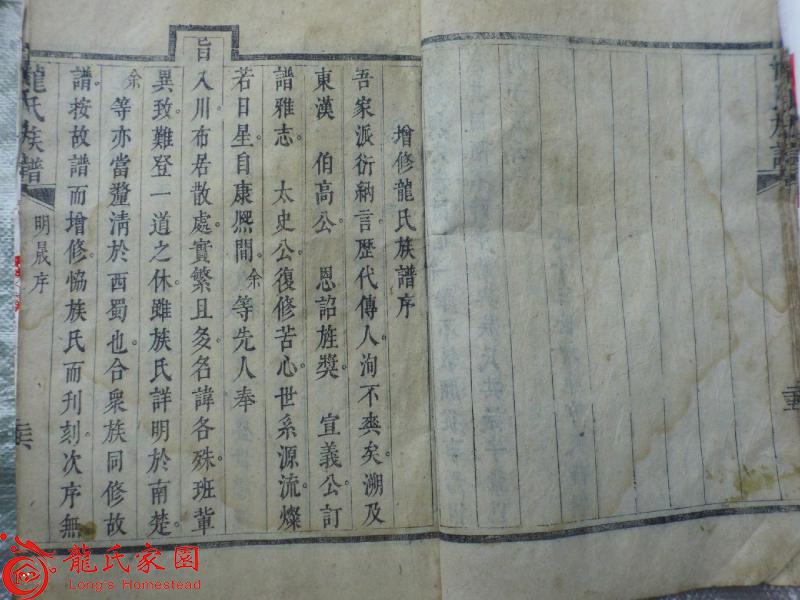 增修龍氏族譜序
吾家派衍納言歷代傳人洵不爽矣溯及
東漢 伯高公 恩詔旌獎 宣義公訂
譜雅志 太史公復修苦心世系源流燦
若日星自康熈間余等先人奉
旨入川布居散處實繁且多名諱各殊班輩
異致難登一道之休雖族氏詳明於南楚
余等亦當釐清於西蜀也合衆族同修故
譜按故譜而增修恊族氏而刊刻次序無
龍氏族譜 明晟序
龍氏家園
Long's Homestead